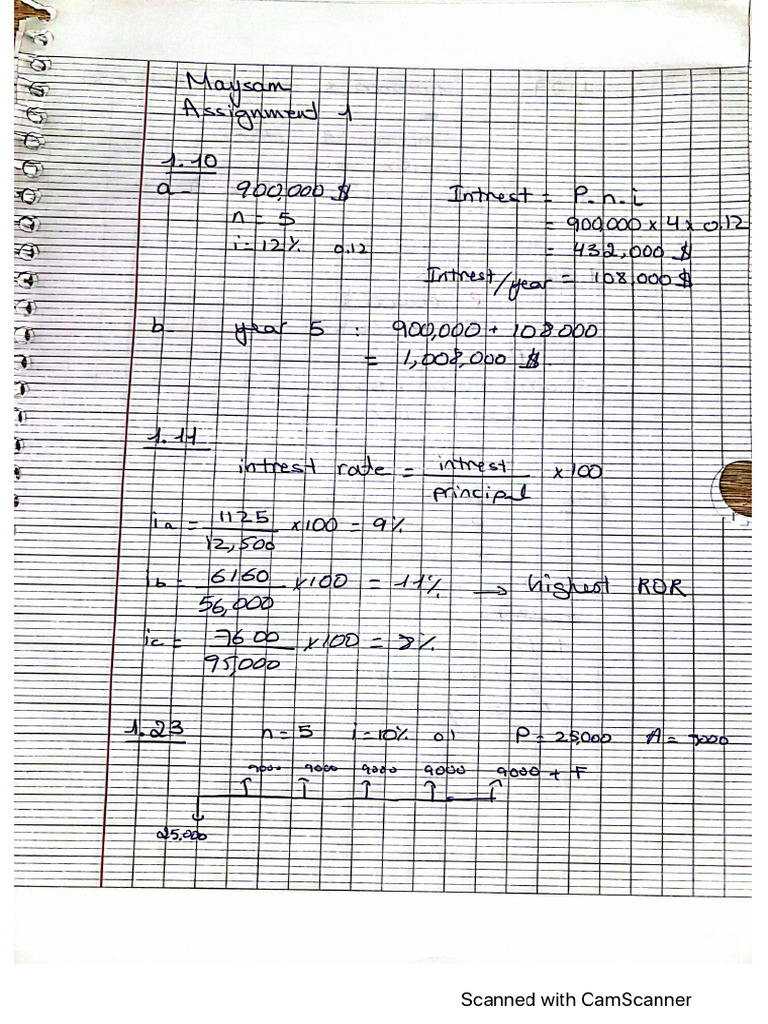 Maysam
Assignment 1
1.10
a- 900,000 $ Intrest = P.n.i
n = 5 = 900,000 x 4 x 0.12
i = 12% 0.12 = 432,000 $
Intrest/year = 108,000 $
b- year 5 : 900,000 + 108000
= 1,008,000 $
1.11
intrest rate = intrest / principal x 100
ia = 1125 / 12,500 x100 = 9%
ib = 6160 / 56,000 x100 = 11% → highest ROR
ic = 7600 / 95,000 x100 = 8%
1.23 n = 5 i = 10% 01 P = 25,000 A =
9000 9000 9000 9000 9000 + F
25,000
Scanned with CamScanner